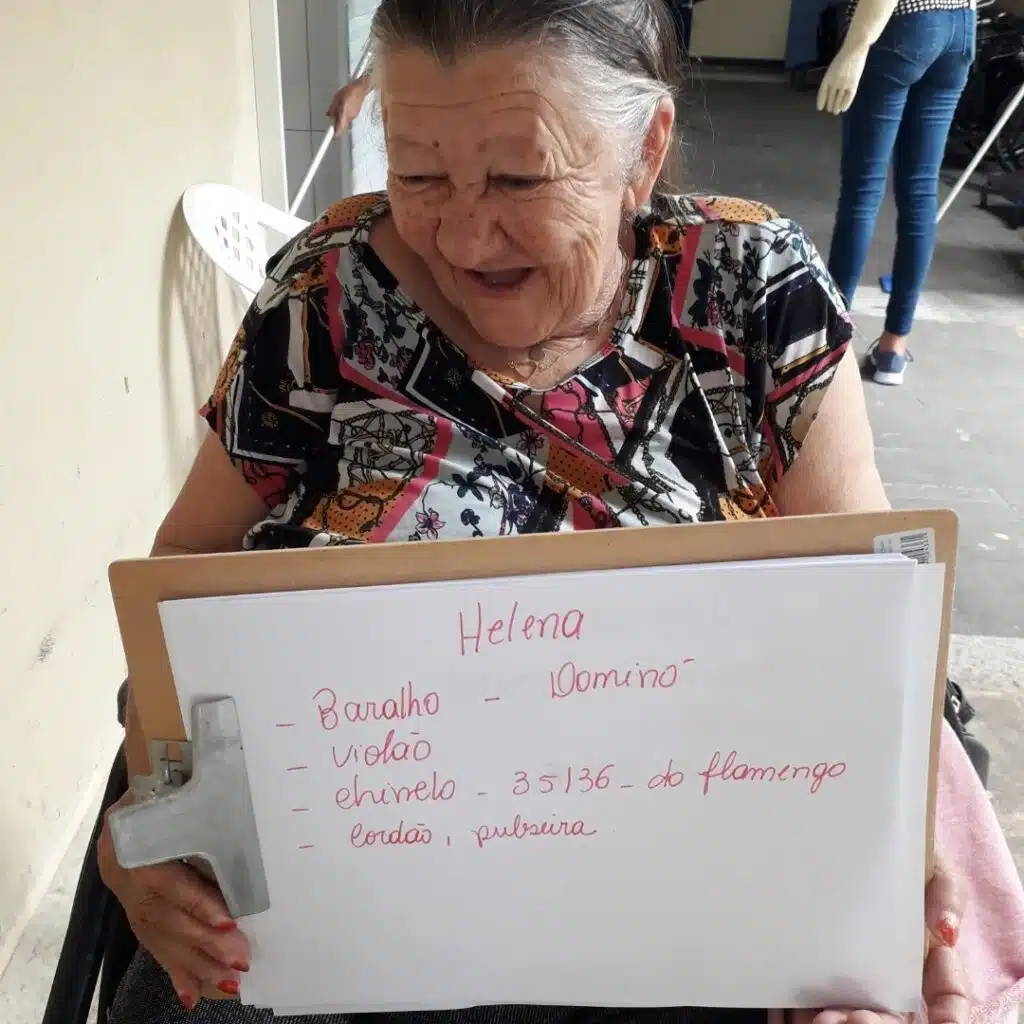 Helena
- Baralho - Dominó
- violão
- chinelo - 35/36 - do flamengo
- Cordão, pulseira